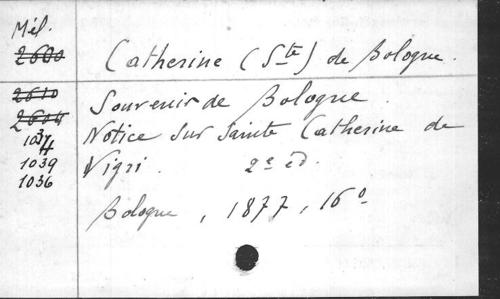 Mél.
2600
Catherine (Ste) de Bologne.
2610
Souvenir de Bologne.
2604
Notice sur Sainte Catherine de
1037
1039
Vigri. 2e éd.
1036
Bologne, 1877, 16°